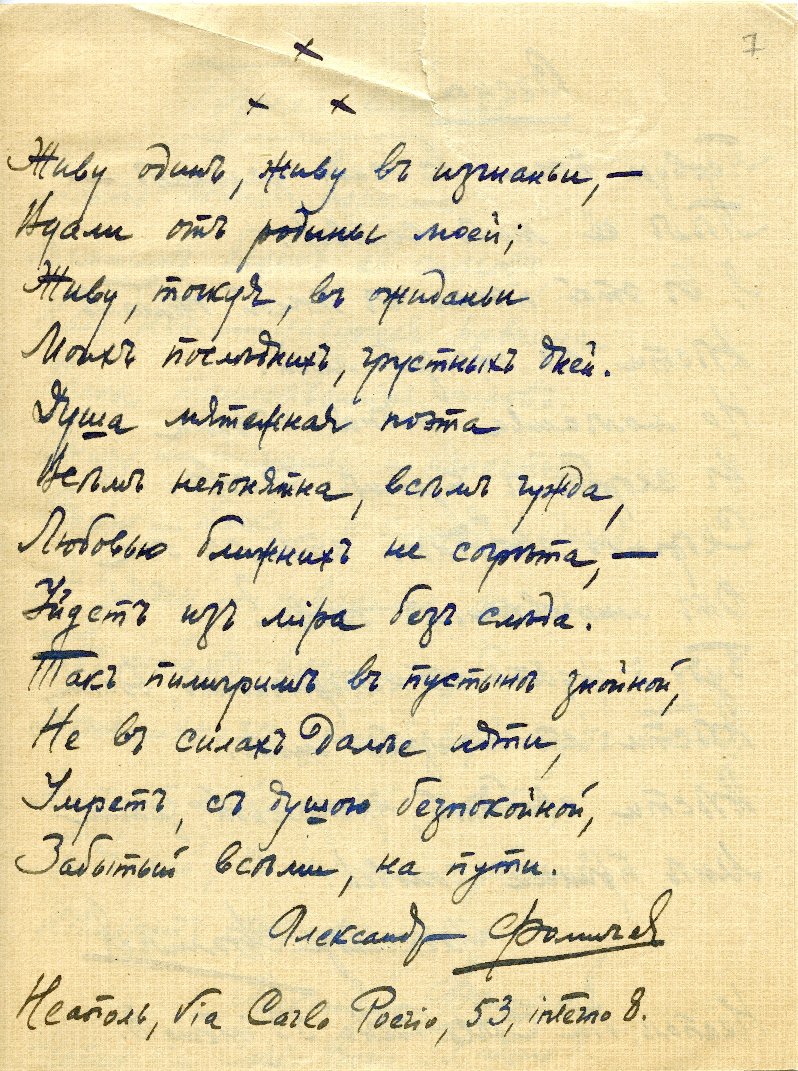 7
× × ×
Живу одинъ, живу въ изгнаньи, —
Вдали отъ родины моей;
Живу, тоскуя, въ ожиданьи
Моихъ послѣднихъ, грустныхъ дней.
Душа мятежная поэта
Всѣмъ непонятна, всѣмъ чужда,
Любовью ближнихъ не согрѣта, —
Уйдетъ изъ міра безъ слѣда.
Такъ пилигримъ въ пустынѣ знойной,
Не въ силахъ далѣе идти,
Умретъ, съ душою безпокойной,
Забытый всѣми, на пути.
Александръ
Неаполь, Via Carlo Poerio, 53, interno 8.